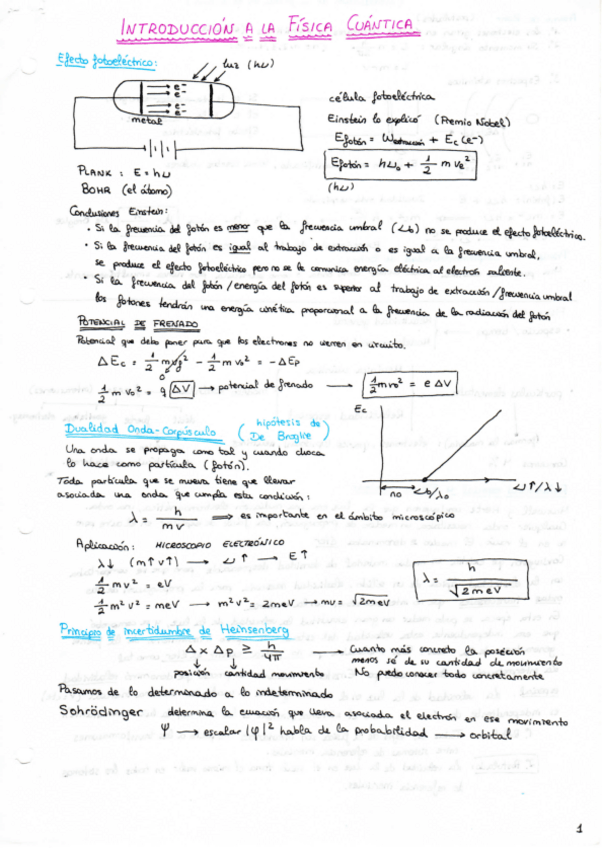 INTRODUCCIÓN A LA FÍSICA CUÁNTICA
Efecto fotoeléctrico:
luz (hν)
e⁻
e⁻
e⁻
e⁻
metal
célula fotoeléctrica
Einstein lo explicó (Premio Nobel)
Efotón = Wextracción + Ec (e⁻)
Efotón = hν₀ + 1/2 m ve²
(hν)
PLANK : E = hν
BOHR (el átomo)
Conclusiones Einstein:
· Si la frecuencia del fotón es menor que la frecuencia umbral (ν₀) no se produce el efecto fotoeléctrico.
· Si la frecuencia del fotón es igual al trabajo de extracción o es igual a la frecuencia umbral,
se produce el efecto fotoeléctrico pero no se le comunica energía eléctrica al electrón saliente.
· Si la frecuencia del fotón / energía del fotón es superior al trabajo de extracción / frecuencia umbral
los fotones tendrán una energía cinética proporcional a la frecuencia de la radiación del fotón
POTENCIAL DE FRENADO
Potencial que debo poner para que los electrones no cierren en circuito.
ΔEc = 1/2 m vf² - 1/2 m v₀² = -ΔEp
0
1/2 m v₀² = q ΔV → potencial de frenado → 1/2 m v₀² = e ΔV
Ec
no
ν₀/λ₀
ν↑/λ↓
Dualidad Onda-Corpúsculo (hipótesis de De Broglie)
Una onda se propaga como tal y cuando choca
lo hace como partícula (fotón).
Toda partícula que se mueva tiene que llevar
asociada una onda que cumpla esta condición:
λ = h / mv ⟹ es importante en el ámbito microscópico
Aplicación: MICROSCOPIO ELECTRÓNICO
λ↓ (m↑ v↑) → ν↑ → E↑
1/2 mv² = eV
1/2 m²v² = meV → m²v² = 2meV → mv = √2meV
λ = h / √2meV
Principio de incertidumbre de Heinsenberg
Δx Δp ≥ h/4π → Cuanto más concreto la posición
menos sé de su cantidad de movimiento
posición cantidad movimiento No puedo conocer todo concretamente
Pasamos de lo determinado a lo indeterminado
Sohrödinger determina la ecuación que lleva asociada el electrón en ese movimiento
φ → escalar |φ|² habla de la probabilidad → orbital
1